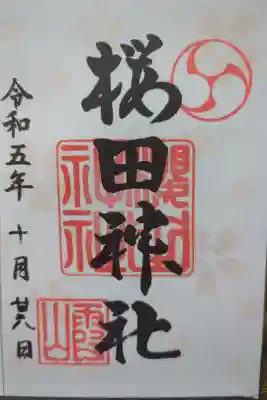 桜田神社
令和五年 十月 廿八日
櫻田神社
霞山